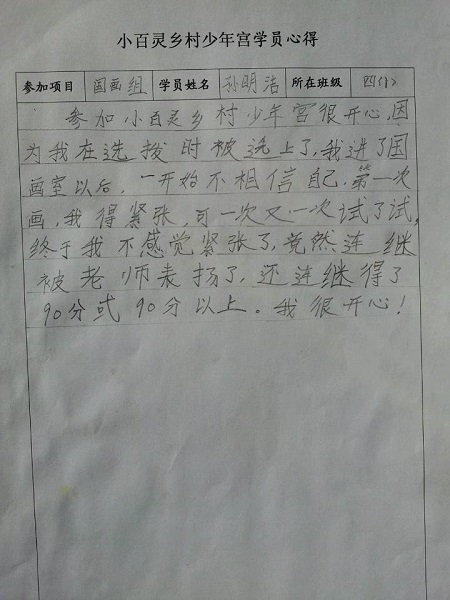 小百灵乡村少年宫学员心得
参加项目 国画组 学员姓名 孙明洁 所在班级 四(1)
参加小百灵乡村少年宫很开心,因
为我在选拔时被选上了,我进了国
画室以后,一开始不相信自己,第一次
画,我得紧张,可一次又一次试了试,
终于我不感觉紧张了,竟然连继
被老师表扬了,还连继得了
90分或90分以上。我很开心!